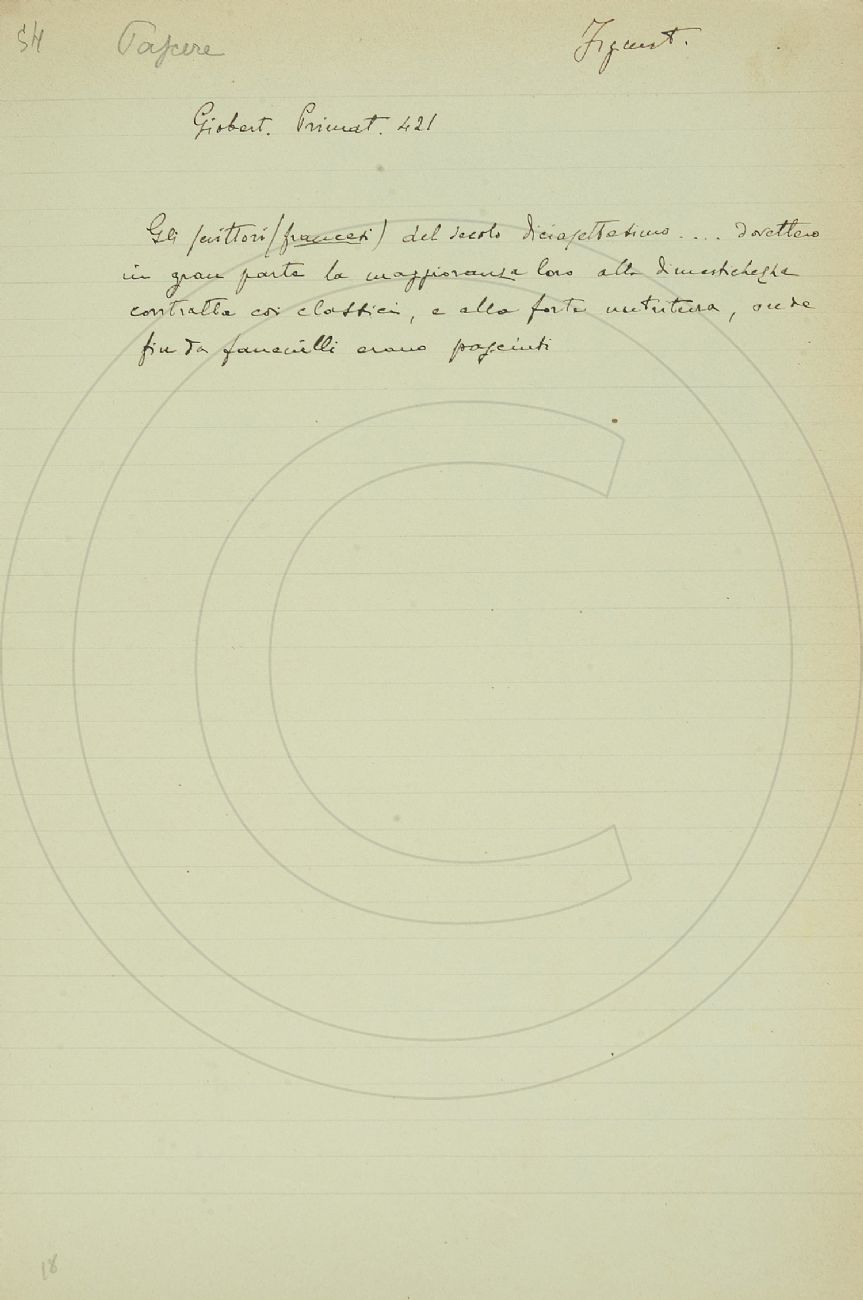 54 Pascere Figurat.
Giobert. Primat. 421
Gli scrittori (francesi) del secolo diciassettesimo .... dovettero
in gran parte la maggioranza loro alla dimestichezza
contratta coi classici, e alla forte nutritura, onde
fin da fanciulli erano pasciuti
18